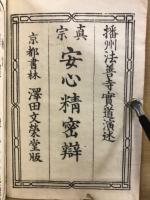 播州法善寺實道演述
真宗
安心精密辯
京都書林 澤田文榮堂版